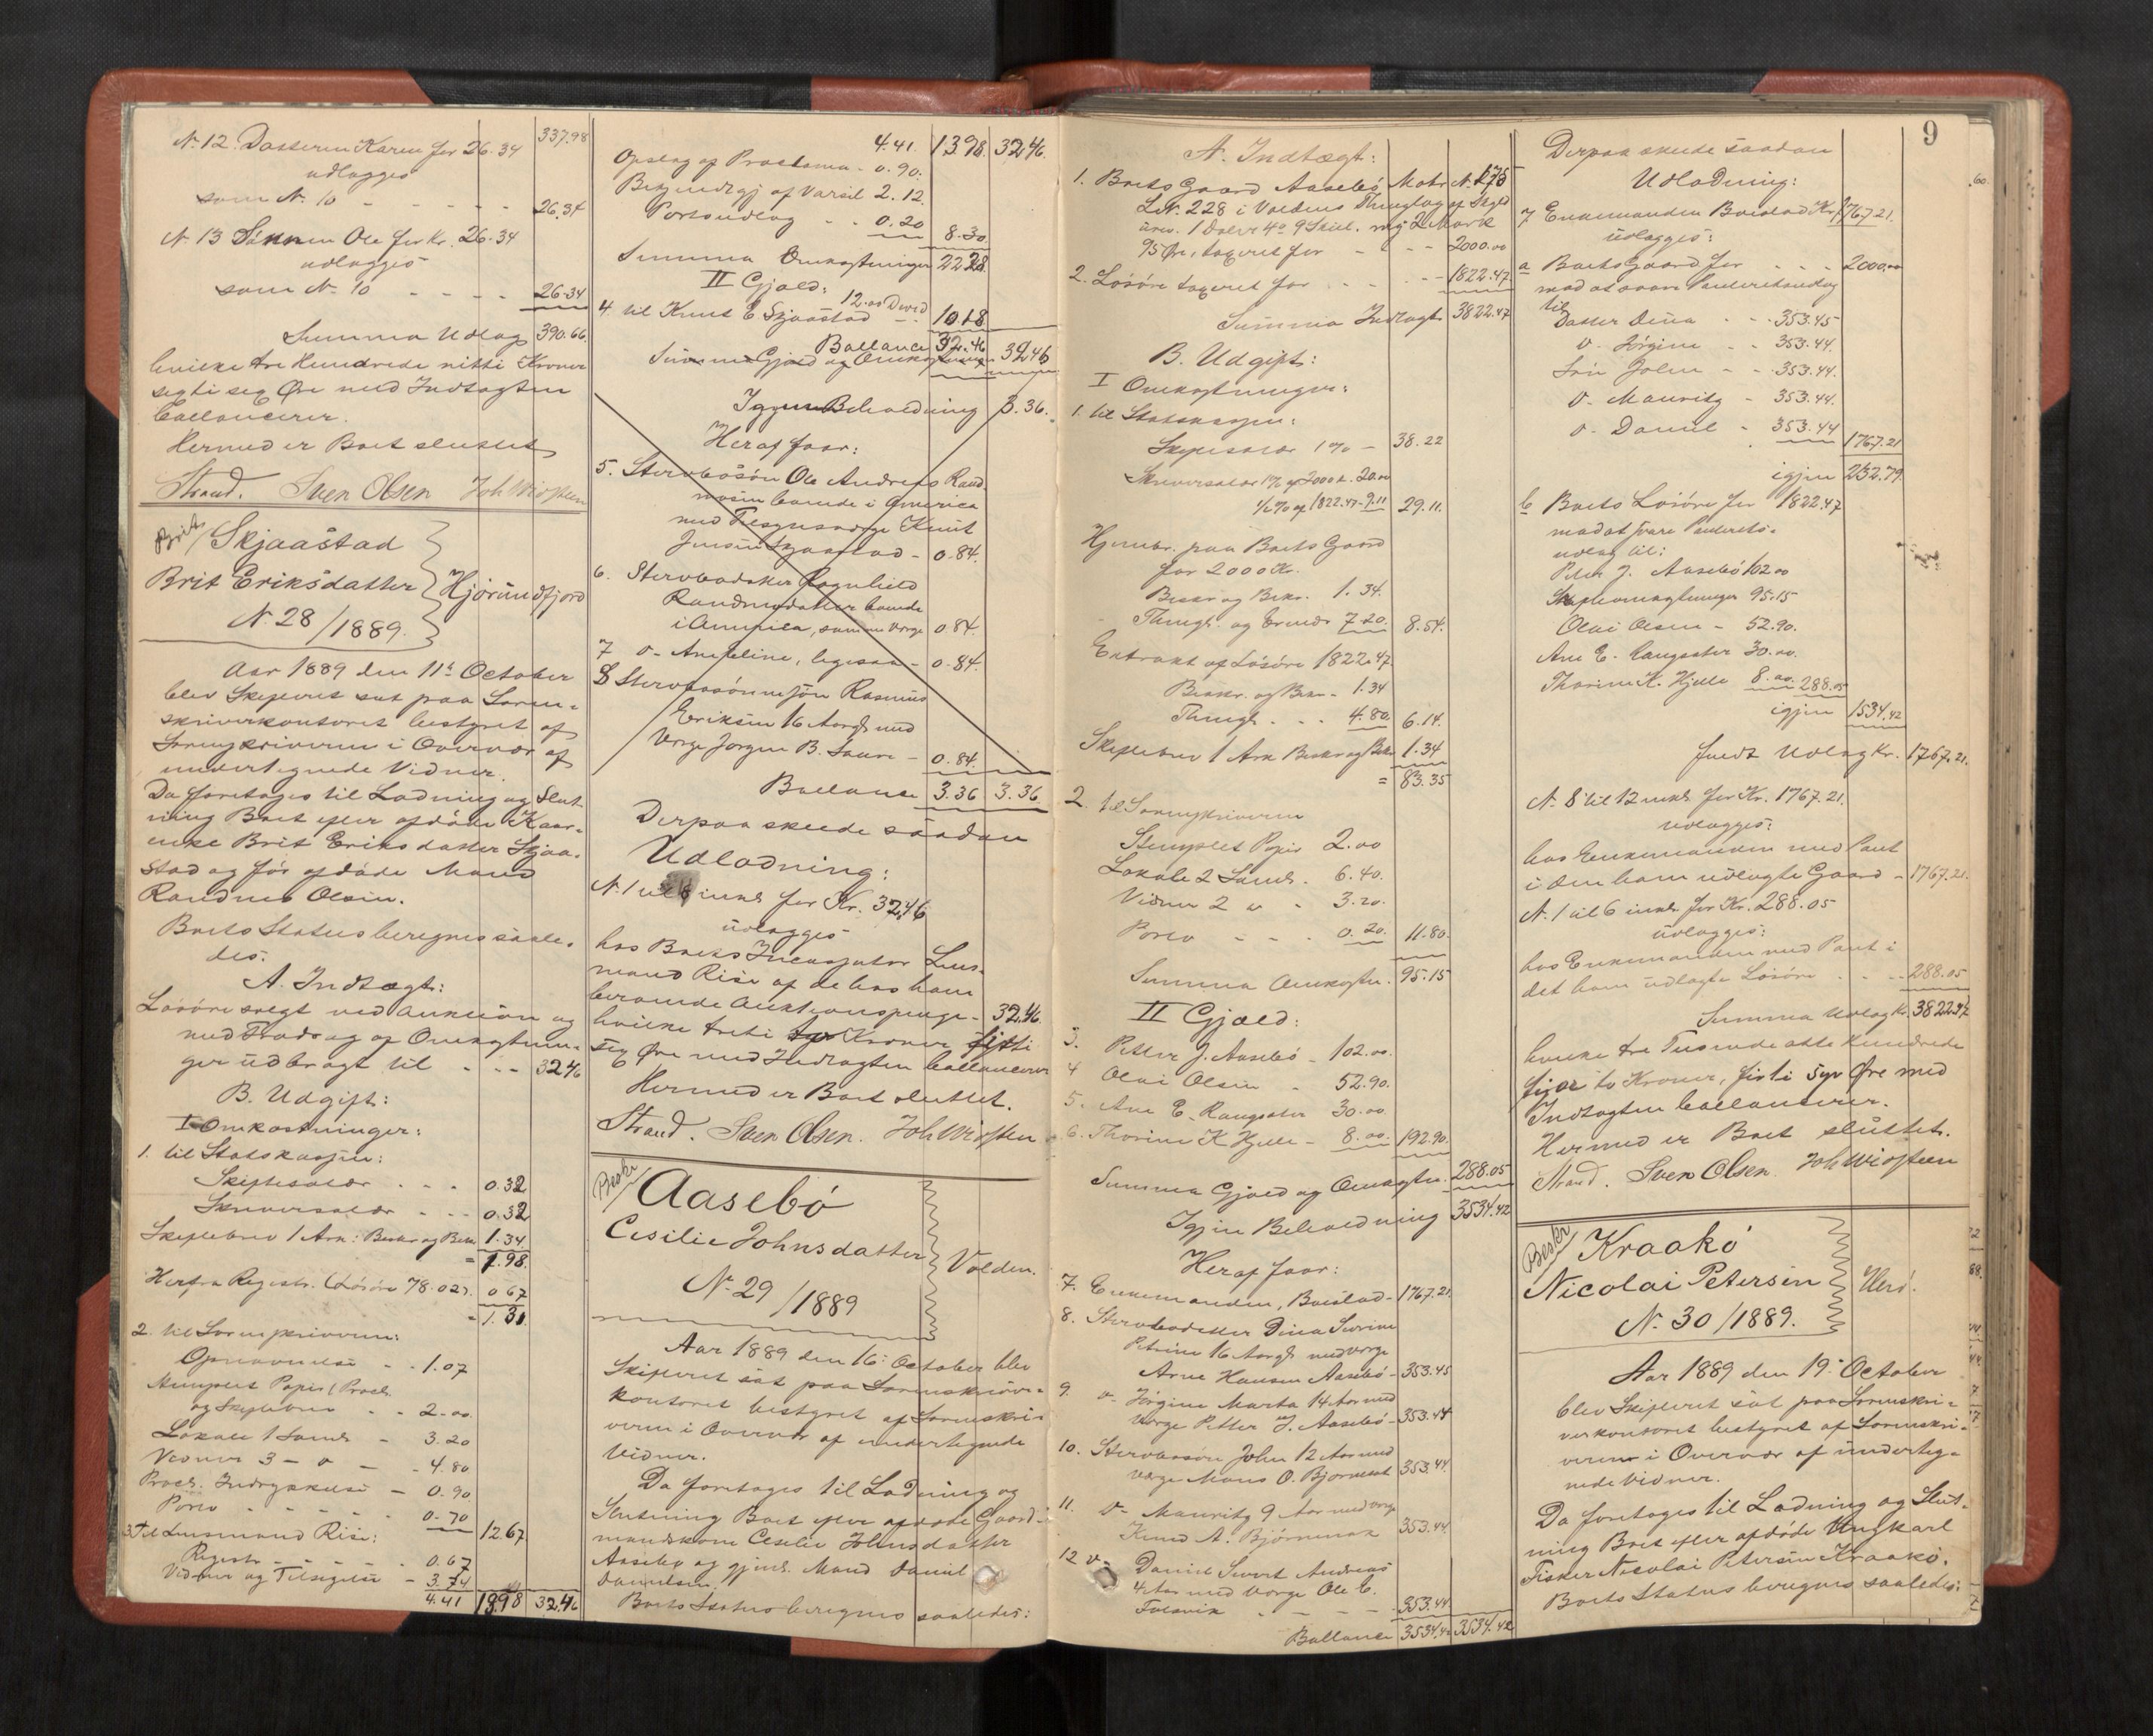 337.98
N. 12. Datteren Karen for 26.34
udlægges
som N. 10 - - - - - 26.34
N. 13 Sønnen Ole for Kr. 26.34
udlægges
som N. 10 - - - - 26.34
Summa Udlæg 390.66.
hvilke tre Hundrede nitti Kroner
sexti sex Øre med Indtægten
ballancerer.
Hermed er Boet sluttet
Strand. Sven Olsen Joh Widsteen
Skjaastad
Brit Eriksdatter Hjørundfjord
N. 28/1889.
Aar 1889 den 11te October
blev Skifteret sat paa Soren-
skriverkontoret bestyret af
Sorenskriveren i Overvær af
undertegnede Vidner.
Da foretages til Lodning og Slut-
ning Boet efter afdøde Kaar-
enke Brit Eriksdatter Skjaa-
stad og før afdøde Mand
Randnes Olsen.
Boets Status beregnes saale-
des:
A. Indtægt:
Løsøre solgt ved Auktion og
med Fradrag af Omkostnin-
ger udbragt til - - - 32.46
B. Udgift:
I Omkostninger:
1. til Statskassen:
Skiftesalær - - - 0.32
Skriversalær - - - 0.32
Skiftebrev 1 Ark: Beskr og Bekr 1.34
= 1.98.
Herfra Registr. (Løsøre 78.02). 0 67
= 1.31.
2. til Sorenskriveren:
Opnævnelse - - 1.07
Stemplet Papir (Procl.
og Skiftebrev - - 2.00.
Lokale 1 Saml. - 3.20
Vidner 3 - o - - 4.80
Procl. Indrykkelse - 0.90
Porto - - - - 0.70
12.67
3. Til Lensmand Rise:
Registr - - - - - 0.67
Vidner og Tilsigelse - 3.74
4.41 13.98 32.46
4.41. 13.98. 32.46.
Opslag af Proclama - 0.90.
Bekjendtgj af Varsel 2.12.
Portoudlæg - 0.20
8.30
Summa Omkostninger 22.28
II Gjæld:
12.00 Dvid
4 til Knut E Skjaastad - - 10.18
Ballance 32.46
Summa Gjæld og Omkostninger 32.46
Igjen Beholdning 3.36.
Heraf faar:
5. Stervbosøn Ole Andreas Rand-
nesen boende i America
med Tilsynsværge Knut
Jensen Skjaastad - 0.84.
6. Stervbodatter Ragnhild
Randnesdatter boende
i America, samme Værge 0.84.
7 o - Anne Eline, ligesaa - 0.84.
8 Stervbosønnesøn Rasmus
Eriksen 16 Aar gl med
Værge Jørgen B. Saure - 0.84.
Ballance 3.36 3.36
Derpaa skede saadan
Udlodning:
N. 1 til 4 incl for Kr. 32.46
udlægges
hos Boets Incassator Lens-
mand Rise af de hos ham
beroende Auktionspenge - 32.46.
hvilke treti to Kroner firti
sex Øre med Indtægten ballancerer
Hermed er Boet sluttet.
Strand. Sven Olsen. Joh Widsteen
Beskr
Aasebø
Cesilie Johnsdatter Volden.
No. 29/1889
Aar 1889 den 16. October blev
Skifteret sat paa Sorenskriver-
kontoret bestyret af Sorenskri-
veren i Overvær af undertegnede
Vidner.
Da foretages til Lodning og
Slutning Boet efter afdøde Gaard-
mandskone Cesilie Johnsdatter
Aasebø og gjenl. Mand Daniel
Danielsen.
Boets Status beregnes saaledes:
9
A. Indtægt:
1. Boets Gaard Aasebø, Matr. N. 175
L.N. 228 i Voldens Thinglag af Skyld
urev. 1 Daler 4 o 9 Skill. ny 2 Mark
95 Øre, taxeret for - - - 2000.00
2. Løsøre taxeret for - - - - 1822.47
Summa Indtægt 3822.47
B. Udgift:
I Omkostninger:
1. til Statskassen:
Skiftesalær 1 % - 38.22
Skriversalær 1 % af 2000 Kr. 20.00
1/2 % af 1822.47 - 9.11 29.11.
Hjemmelsbr. paa Boets Gaard
for 2000 Kr.
Beskr og Bekr. 1.34.
Thingl. og Erindr 7.20. 8.54.
Extrakt af Løsøre 1822.47
Beskr. og Bekr - 1.34
Thingl. - - - 4.80. 6.14.
Skiftebrev 1 Ark Beskr og Bekr 1.34
= 83.35
2. til Sorenskriveren
Stemplet Papir 2.00
Lokale 2 Saml. - 6.40.
Vidner 2 o - 3.20.
Porto - - - 0.20. 11.80.
Summa Omkostn. 95.15
II Gjæld:
3. Petter J. Aasebø - 102.00.
4 Olai Olsen - 52.90.
5. Ane E. Rangsæter 30.00
6. Thorine K Hjelle - 8.00. 192.90.
Summa Gjæld og Omkostn. 288.05
Igjen Beholdning 3534.42
Heraf faar:
7. Enkemanden, Boeslod - 1767.21
8. Stervbodatter Dina Serine
Petrine 16 Aar gl. med Værge
Arne Hansen Aasebø - 353.45
9. o - Jørgine Marta 14 Aar med
Værge Petter J. Aasebø - 353.44
10. Stervbosøn John 12 Aar med
Værge Mons O. Bjørneset 353.44
11. o - Mauritz 9 Aar med Værge
Knud A. Bjørnenak 353.44
12 o - Daniel Sivert Andreas
4 Aar med Værge Ole C.
Folesvik - - - - 353.44
Ballance 3534.42 3534.42
Derpaa skede saadan
Udlodning:
7 Enkemanden Boeslod Kr. 1767.21.
udlægges:
a Boets Gaard for - - - 2000.00
mod at svare Panteretsudlæg
til
Datter Dina - - - 353.45
o. Jørgine - - 353.44.
Søn John - - 353.44.
o. Mauritz - 353.44.
o. Daniel - 353.44
1767.21
igjen 232.79.
b Boets Løsøre for 1822.47
mod at svare Panterets-
udlæg til:
Petter J. Aasebø 102 00
Skifteomkostninger 95.15
Olai Olsen - 52.90.
Ane E. Rangsæter 30.00.
Thorine K. Hjelle 8.00. 288.05
igjen 1534.42
fuldt Udlæg Kr. 1767.21.
N. 8 til 12 incl. for Kr. 1767.21.
udlægges:
hos Enkemanden med Pant
i den ham udlagte Gaard - 1767.21.
N. 1 til 6 incl. for Kr. 288.05
udlægges:
hos Enkemanden med Pant i
det ham udlagte Løsøre - - - 288.05
Summa Udlæg Kr. 3822.47
hvilke tre Tusende otte Hundrede
tjue to Kroner, firti syv Øre med
Indtægten ballancerer.
Hermed er Boet sluttet.
Strand. Sven Olsen. Joh Widsteen
Beskr
Kraakø
Nicolai Petersen Herø.
N. 30/1889.
Aar 1889 den 19. October
blev Skifteret sat paa Sorenskri-
verkontoret bestyret af Sorenskri-
veren i Overvær af underteg-
nede Vidner.
Da foretages til Lodning og Slut-
ning Boet efter afdøde Ungkarl
Fisker Nicolai Petersen Kraakø.
Boets Status beregnes saaledes: